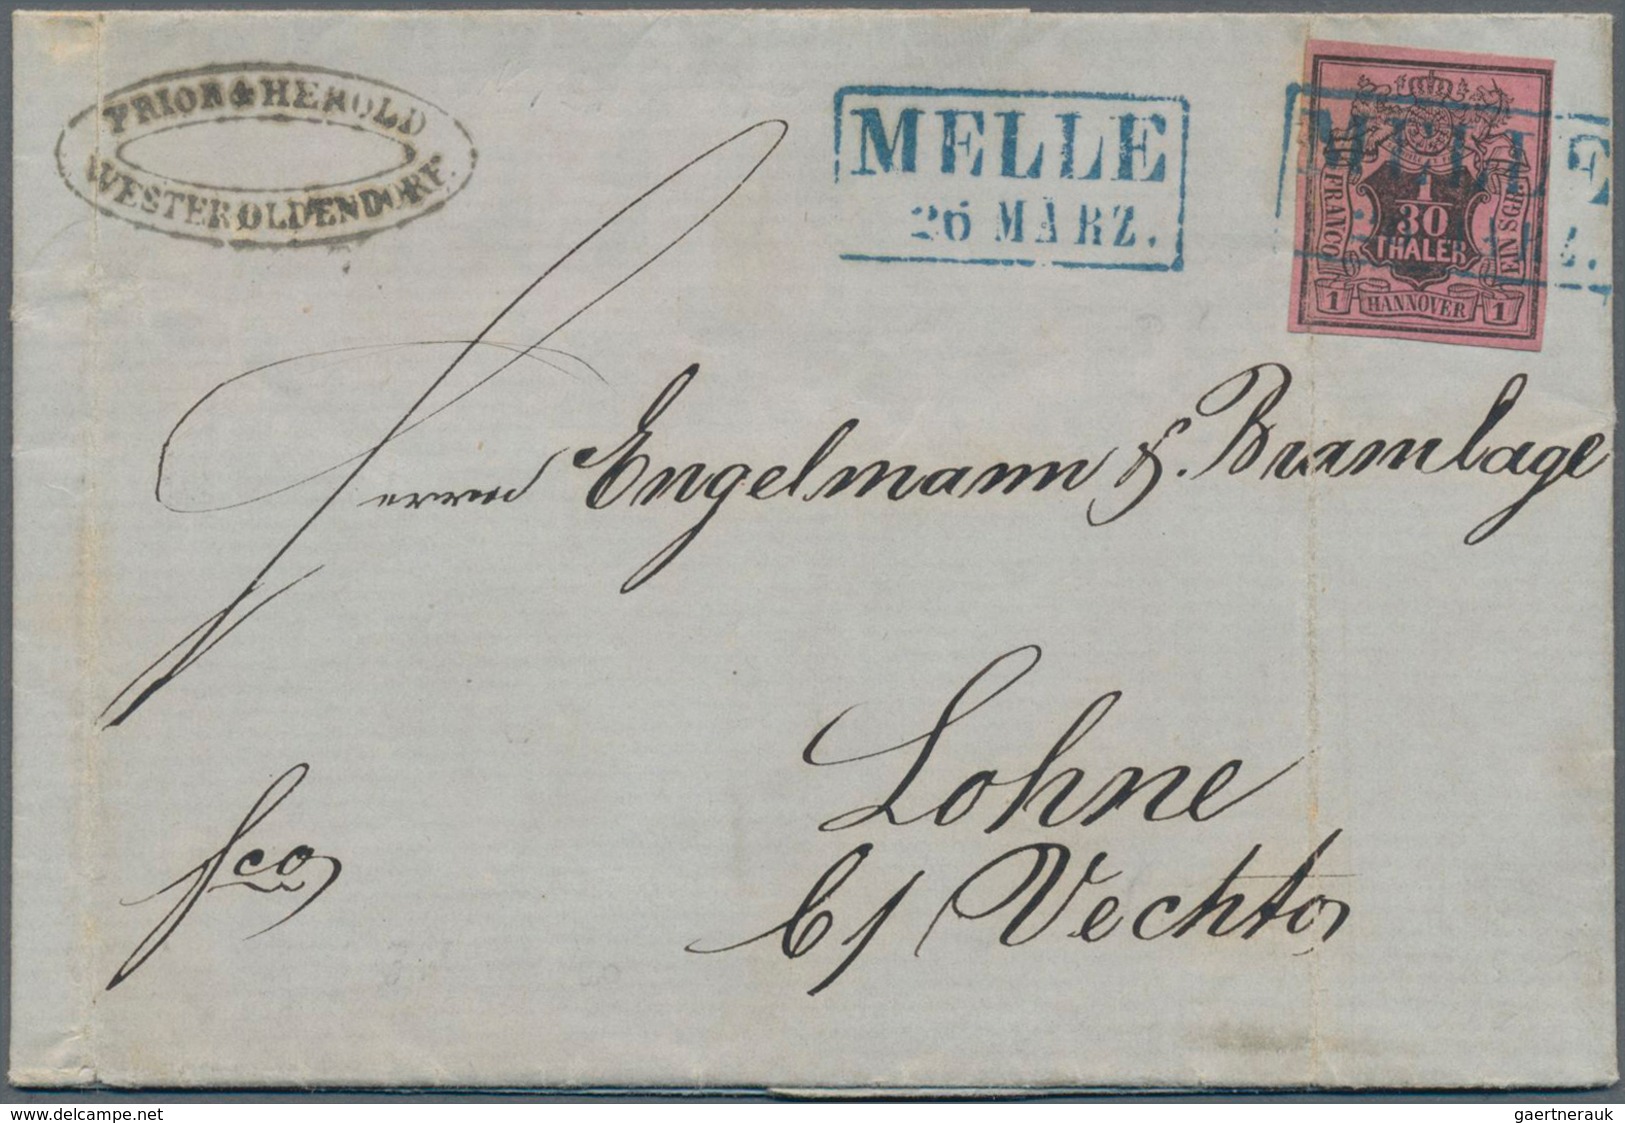 PRIOR & HEROLD
WESTEROLDENDORF.
MELLE
26 MÄRZ.
MELLE
FRANCO
1/30
THALER
EIN S.GR.
1 HANNOVER 1
Herren Engelmann & Bramlage
Lohne
b/ Vechta
fco
delcampe.net
gaertnerauk